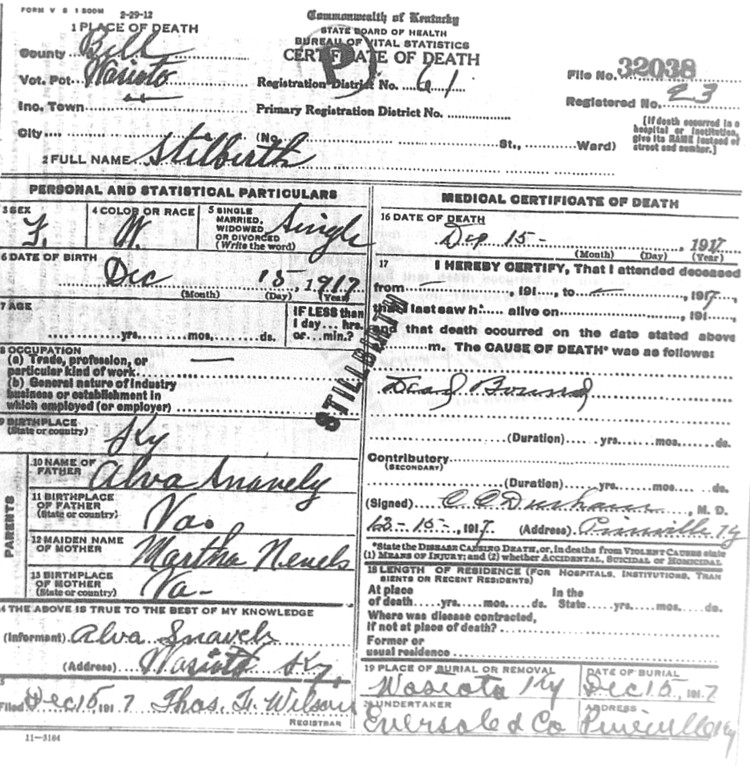 FORM V S 1 500M
2-29-12
Commonwealth of Kentucky
STATE BOARD OF HEALTH
BUREAU OF VITAL STATISTICS
CERTIFICATE OF DEATH
1 PLACE OF DEATH
County Bell
Vot. Pct. Wasioto
Registration District No. 61
File No. 32038
Inc. Town
Primary Registration District No.
Registered No. 23
City (No. St., Ward)
[If death occurred in a hospital or institution, give its NAME instead of street and number.]
2 FULL NAME Stilbirth
PERSONAL AND STATISTICAL PARTICULARS
3 SEX
F.
4 COLOR OR RACE
W.
5 SINGLE MARRIED, WIDOWED OR DIVORCED (Write the word)
Single
6 DATE OF BIRTH
Dec 15, 1917
(Month) (Day) (Year)
7 AGE
yrs. mos. ds.
IF LESS than 1 day... hrs. or... min.?
8 OCCUPATION
(a) Trade, profession, or
particular kind of work —
(b) General nature of industry
business or establishment in
which employed (or employer)
9 BIRTHPLACE
(State or country)
Ky
PARENTS
10 NAME OF FATHER
Alva Snavely
11 BIRTHPLACE OF FATHER
(State or country)
Va.
12 MAIDEN NAME OF MOTHER
Martha Nevels
13 BIRTHPLACE OF MOTHER
(State or country)
Va-
4 THE ABOVE IS TRUE TO THE BEST OF MY KNOWLEDGE
(Informant) Alva Snavely
(Address) Wasioto Ky.
5
Filed Dec 15, 1917 Thos. F. Wilson
REGISTRAR
11—3164
MEDICAL CERTIFICATE OF DEATH
16 DATE OF DEATH
15-, 1917
(Month) (Day) (Year)
17 I HEREBY CERTIFY, That I attended deceased
from —, 191 , to —, 1917
that I last saw h alive on , 191
and that death occurred on the date stated above
m. The CAUSE OF DEATH* was as follows:
STILLBIRTH
Dead
(Duration) yrs. mos. ds.
Contributory
(SECONDARY)
(Duration) yrs. mos. ds.
(Signed) C C Durham, M. D.
12-15-, 1917 (Address) Pineville Ky
*State the DISEASE CAUSING DEATH, or, in deaths from VIOLENT CAUSES state
(1) MEANS OF INJURY; and (2) whether ACCIDENTAL, SUICIDAL OR HOMICIDAL
18 LENGTH OF RESIDENCE (FOR HOSPITALS, INSTITUTIONS, TRAN
SIENTS OR RECENT RESIDENTS)
At place of death yrs. mos. ds. In the State yrs. mos. ds.
Where was disease contracted,
if not at place of death?
Former or
usual residence
19 PLACE OF BURIAL OR REMOVAL
Wasiota Ky
DATE OF BURIAL
Dec 15, 1917
UNDERTAKER
Eversole & Co
ADDRESS
Pineville Ky